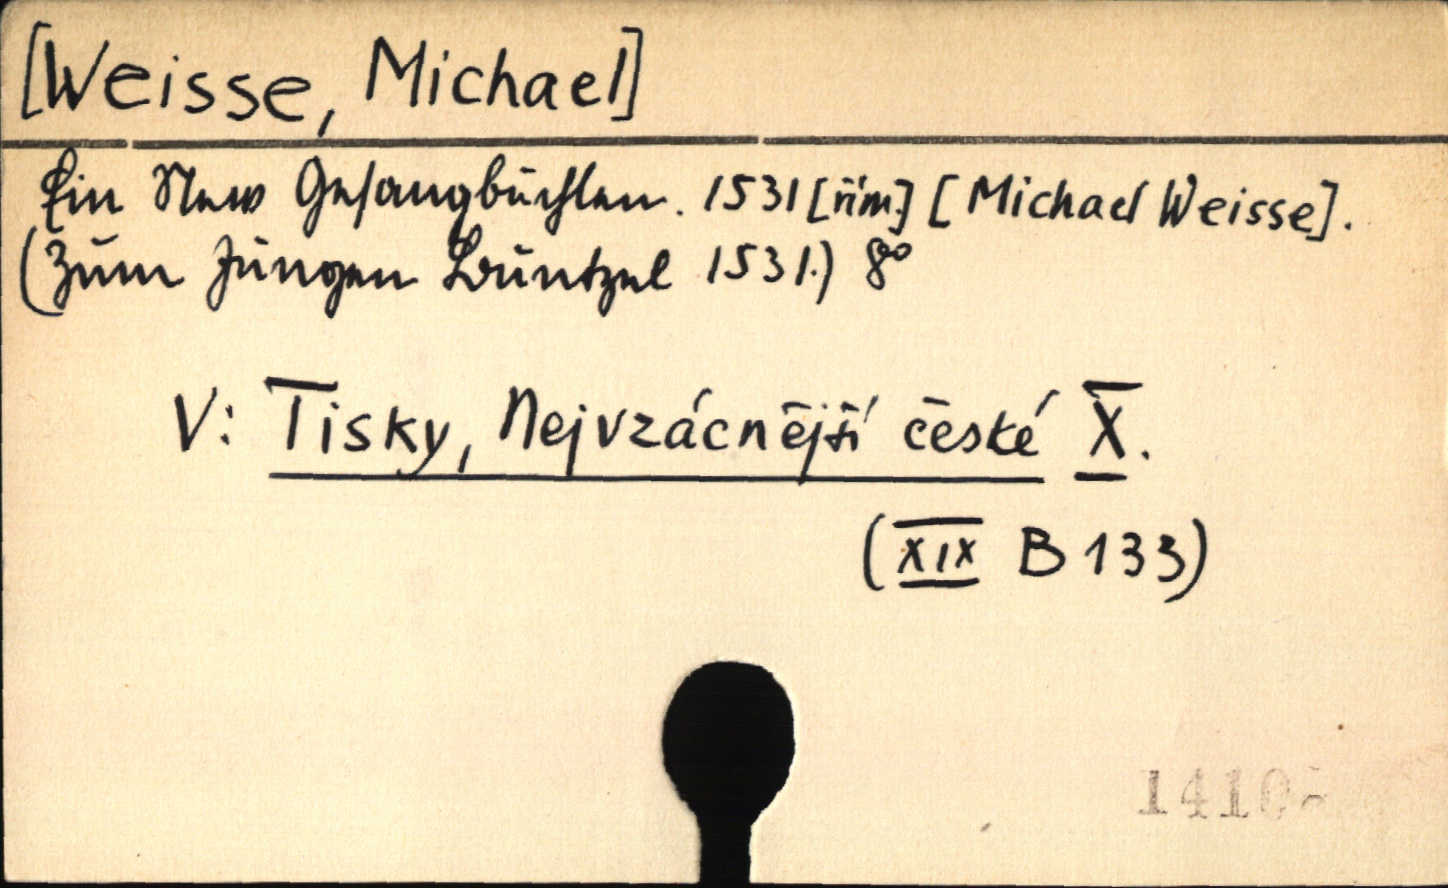 [Weisse, Michael]
Ein New Gesangbuchlen. 1531 [řím.] [Michael Weisse].
(Zum Jungen Buntzel 1531.) 8°
V: Tisky, Nejvzácnější české X.
(XIX B 133)